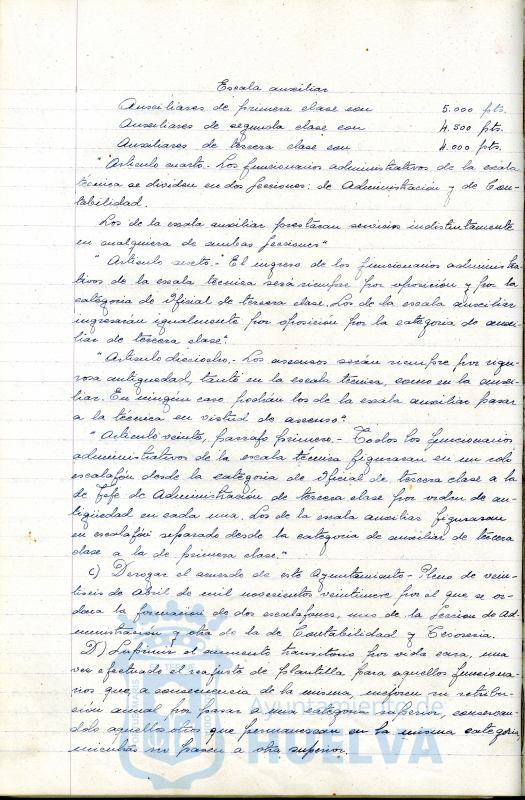 Escala auxiliar
Auxiliares de primera clase con 5.000 pts.
Auxiliares de segunda clase con 4.500 pts.
Auxiliares de tercera clase con 4.000 pts.
"Articulo cuarto.- Los funcionarios administrativos de la escala
técnica se dividen en dos secciones: de Administración y de Con-
tabilidad.
Los de la escala auxiliar prestarán servicios indistintamente
en cualquiera de ambas secciones"
"Articulo sexto.- El ingreso de los funcionarios administra-
tivos de la escala técnica será siempre por oposición y por la
categoria de Oficial de tercera clase. Los de la escala auxiliar
ingresarán igualmente por oposición por la categoria de auxi-
liar de tercera clase".
"Articulo dieciocho.- Los ascensos serán siempre por rigu-
rosa antigüedad, tanto en la escala técnica, como en la auxi-
liar. En ningún caso podrán los de la escala auxiliar pasar
a la técnica en virtud de ascenso".
"Articulo veinte, parrafo primero.- Todos los funcionarios
administrativos de la escala técnica figuraran en un solo
escalafón desde la categoria de Oficial de tercera clase a la
de Jefe de Administración de tercera clase por orden de an-
tigüedad en cada una. Los de la escala auxiliar figuraran
en escalafón separado desde la categoria de auxiliar de tercera
clase a la de primera clase."
c) Derogar el acuerdo de este Ayuntamiento-Pleno de vein-
tiseis de Abril de mil novecientos veintinueve por el que se or-
dena la formación de dos escalafones, uno de la Sección de Ad-
ministración y otro de la de Contabilidad y Tesoreria.
D) Suprimir el aumento transitorio por vida cara, una
vez efectuado el reajuste de plantilla para aquellos funciona-
rios que a consecuencia de la misma, mejoren su retribu-
ción anual por pasar a una categoria superior, conservan-
dolo aquellos otros que permanezcan en la misma categoria,
mientras no pasen a otra superior.
Ayuntamiento de
HUELVA